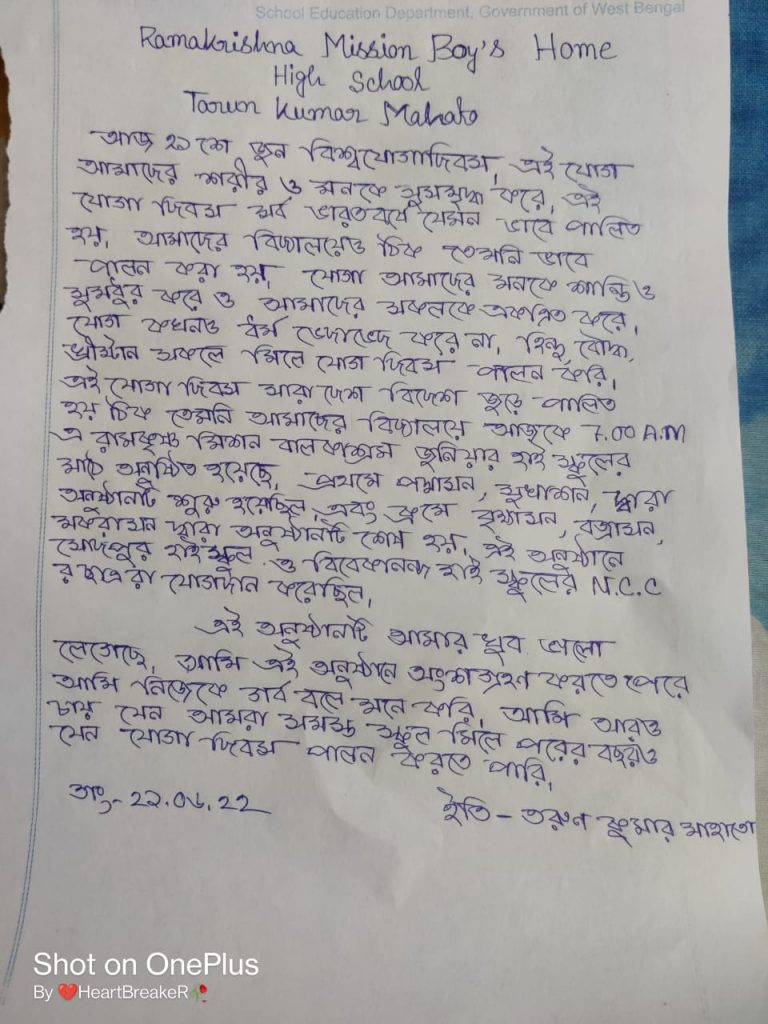 School Education Department, Government of West Bengal
Ramakrishna Mission Boy's Home
High School
Tarun Kumar Mahato
আজ ২১ শে জুন বিশ্বযোগাদিবস, এই যোগা
আমাদের শরীর ও মনকে সুসমৃদ্ধ করে, এই
যোগা দিবস সর্ব ভারতবর্ষে যেমন ভাবে পালিত
হয়, আমাদের বিদ্যালয়েও ঠিক তেমনি ভাবে
পালন করা হয়, যোগা আমাদের মনকে শান্তি ও
সুমধুর করে ও আমাদের সকলকে একত্রিত করে,
যোগ কখনও ধর্ম ভেদাভেদ করে না, হিন্দু বৌদ্ধ,
খ্রীস্টান সকলে মিলে যোগ দিবস পালন করি,
এই যোগা দিবস সারা দেশ বিদেশ জুড়ে পালিত
হয় ঠিক তেমনি আমাদের বিদ্যালয়ে আজকে 7.00 A.M
এ রামকৃষ্ণ মিশন বালকাশ্রম জুনিয়ার হাই স্কুলের
মাঠে অনুষ্ঠিত হয়েছে, প্রথমে পদ্মাসন, সুখাশন, দ্বারা
অনুষ্ঠানটি শুরু হয়েছিল, এবং ক্রমে বৃক্ষাসন, বজ্রাসন,
মকরাসন দ্বারা অনুষ্ঠানটি শেষ হয়, এই অনুষ্ঠানে
সোদপুর হাই স্কুল ও বিবেকানন্দ হাই স্কুলের N.C.C
র ছাত্ররা যোগদান করেছিল,
এই অনুষ্ঠানটি আমার খুব ভালো
লেগেছে, আমি এই অনুষ্ঠানে অংশগ্রহণ করতে পেরে
আমি নিজেকে গর্ব বলে মনে করি, আমি আরও
চায় যেন আমরা সমস্ত স্কুল মিলে পরের বছরও
যেন যোগা দিবস পালন করতে পারি,
তাং- ২১.০৬.২২
ইতি - তরুণ কুমার মাহাতো
Shot on OnePlus
By ❤️HeartBreakeR🥀